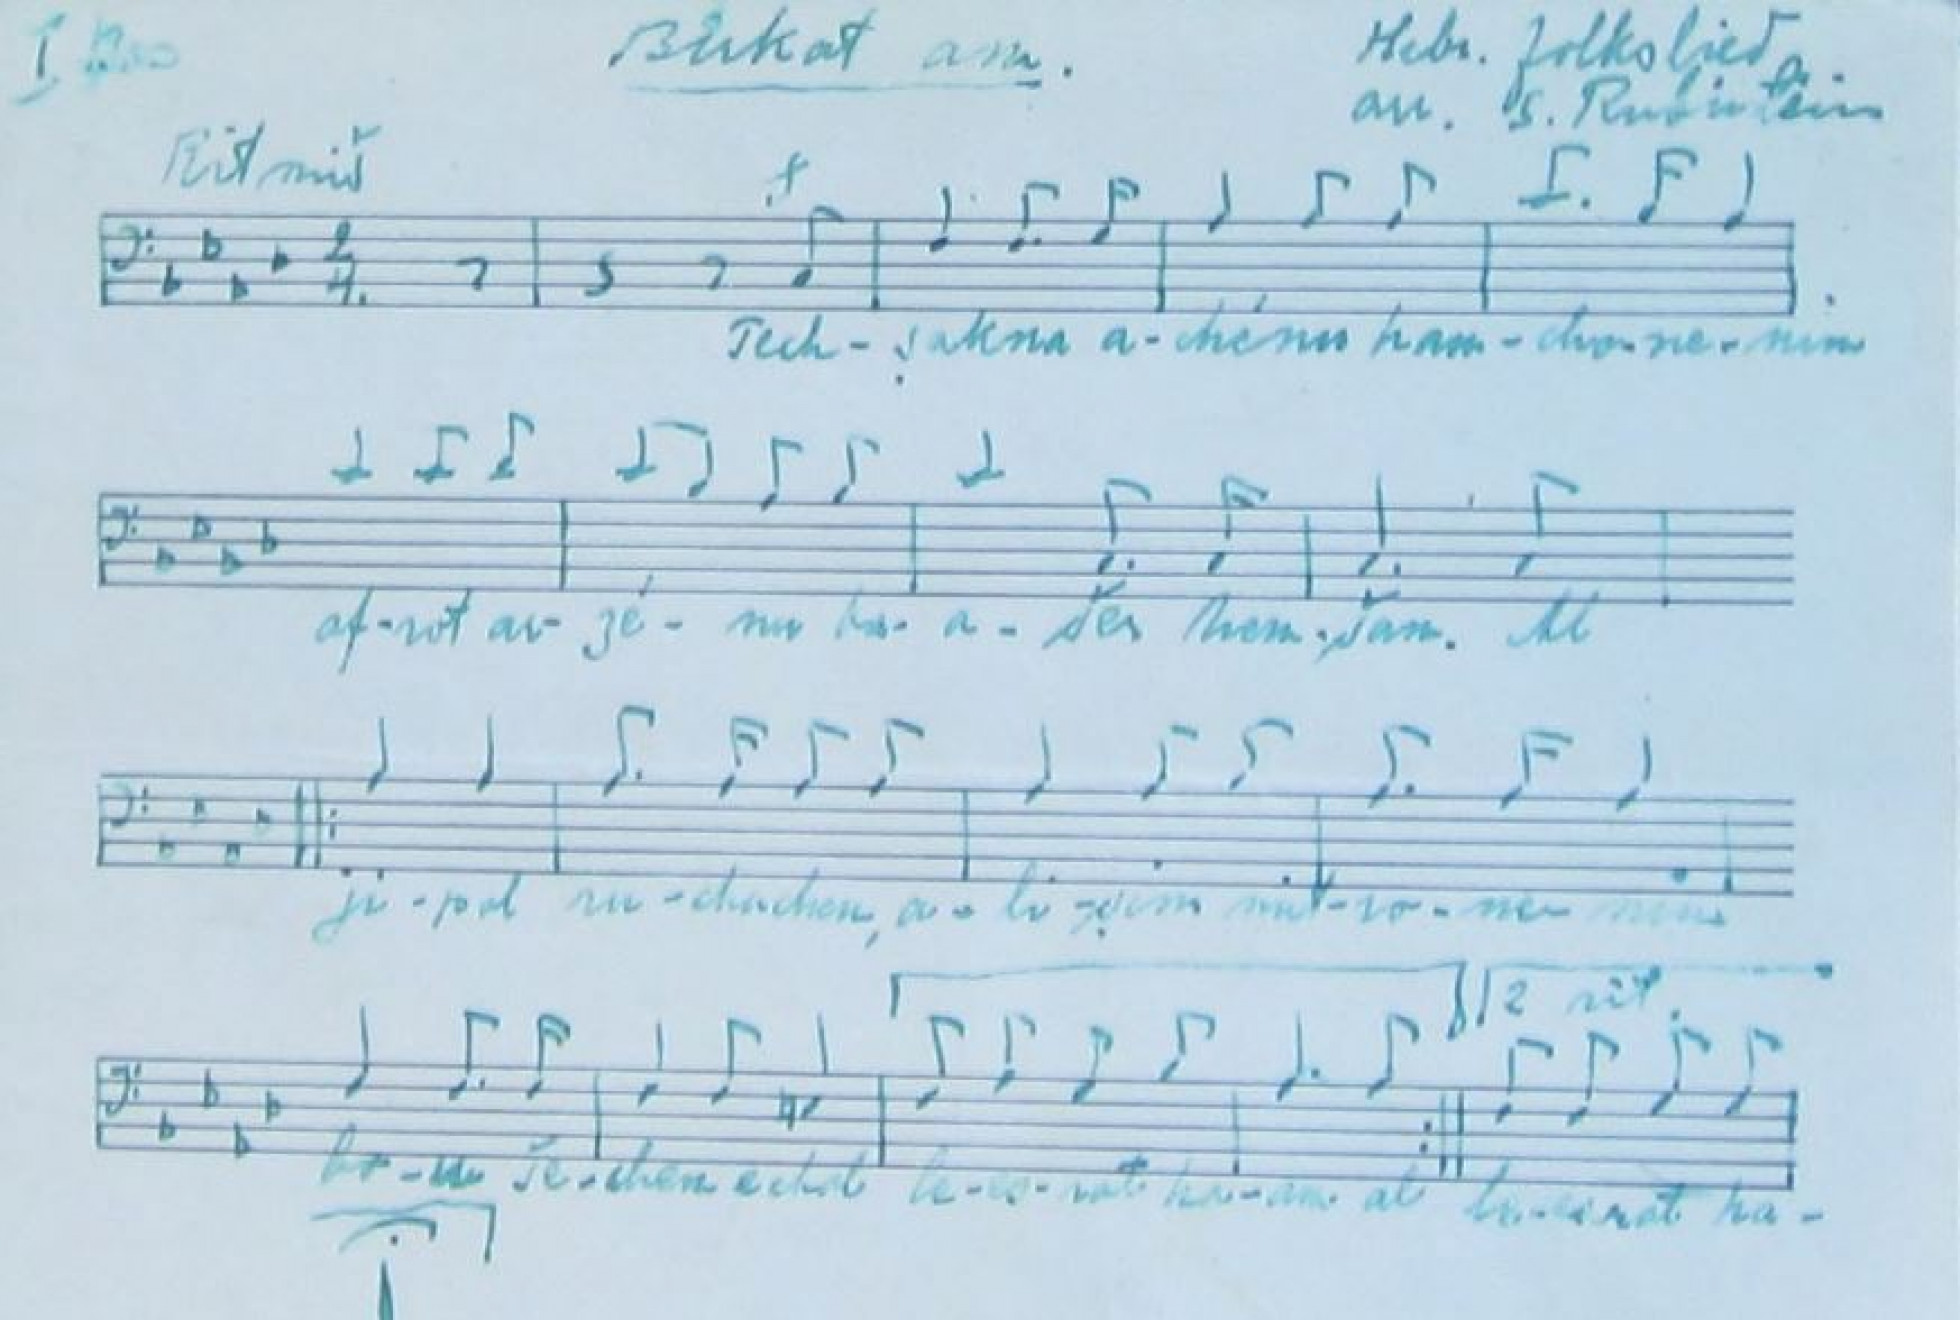 I
Birkat am.
Hebr. folkslied
arr. S. Rubinstein
Ritmis
2
4
Tech- jakna a-chénu ham-cho-ne-nim
af-rot ar-zé- nu ba- a- šer hem-šam. Al
ji-pol ru-chachem, a-li-zim mit-ro-ne-nim
bo-u še-chem echod le-es-rat ha-am al le-esrat ha-
2 rit.